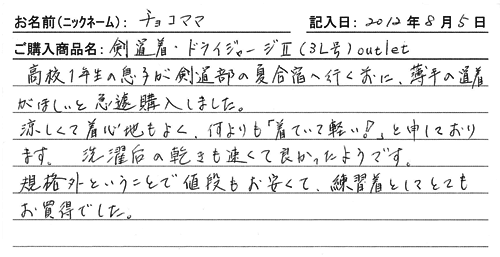 お名前(ニックネーム): チョコママ 記入日: 2012年8月5日
ご購入商品名: 剣道着・ドライジャージⅡ(3L号)outlet
高校1年生の息子が剣道部の夏合宿へ行く前に、薄手の道着
がほしいと急遽購入しました。
涼しくて着心地もよく、何よりも「着ていて軽い!」と申しており
ます。 洗濯后の乾きも速くて良かったようです。
規格外ということで値段もお安くて、練習着としてとても
お買得でした。